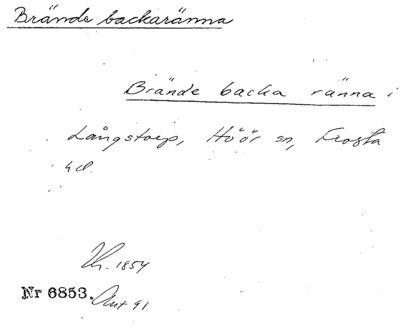 Brände backaränna
Brände backa ränna i
Långstorp, Höör sn, Frosta
hd.
Kr. 1854
Nr 6853. Ant 91.